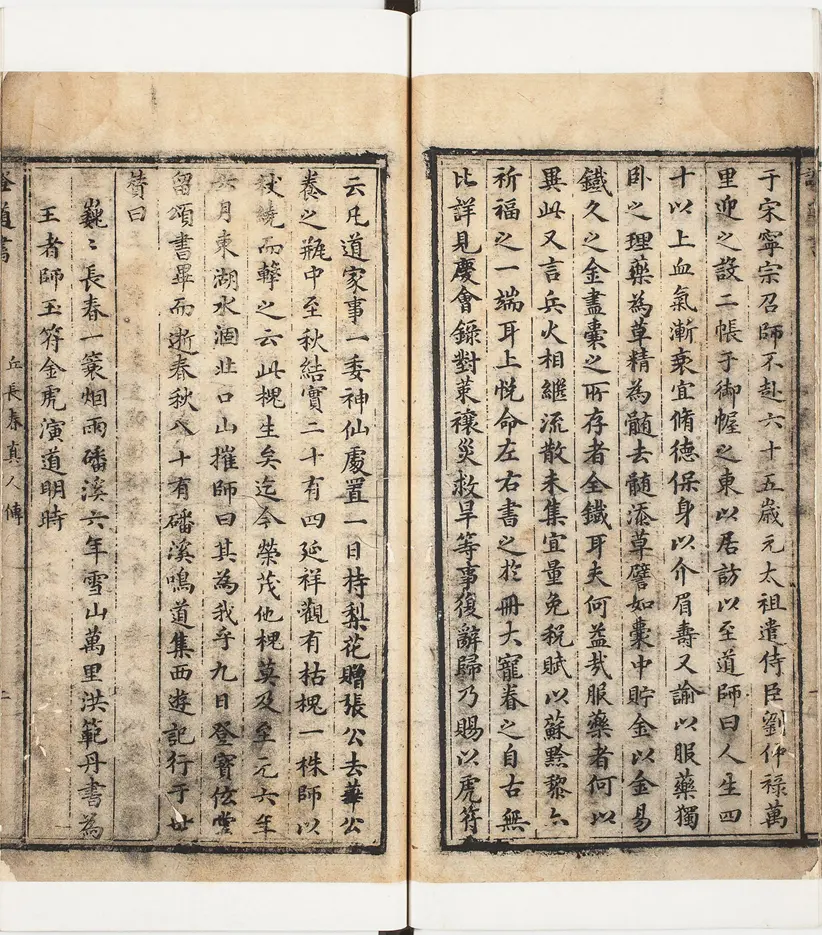 于宋寧宗召師不赴六十五歲元太祖遣侍臣劉仲祿萬
里迎之設二帳于御幄之東以居訪以至道師曰人生四
十以上血氣漸衰宜脩德保身以介眉壽又諭以服藥獨
卧之理藥為草精為髓去髓添草譬如囊中貯金以金易
鐵久之金盡囊之所存者全鐵耳夫何益㢤服藥者何以
異此又言兵火相繼流散未集宜量免稅賦以蘇黔黎亦
祈福之一端耳上悅命左右書之於冊大寵眷之自古無
比詳見慶會錄對策禳災救旱等事復辭歸乃賜以虎符
云凡道家事一委神仙處置一日持梨花贈張公去華公
養之瓶中至秋結實二十有四延祥觀有枯槐一株師以
杖繞而擊之云此槐生矣迄今榮茂他槐莫及至元六年
六月東湖水涸北口山摧師曰其為我乎九日登寶玹堂
留頌書畢而逝春秋八十有磻溪鳴道集西遊記行于世
贊曰
巍〻長春一簑烟雨磻溪六年雪山萬里洪範丹書為
王者師玉符金虎演道明時
道書
丘長春真人傳